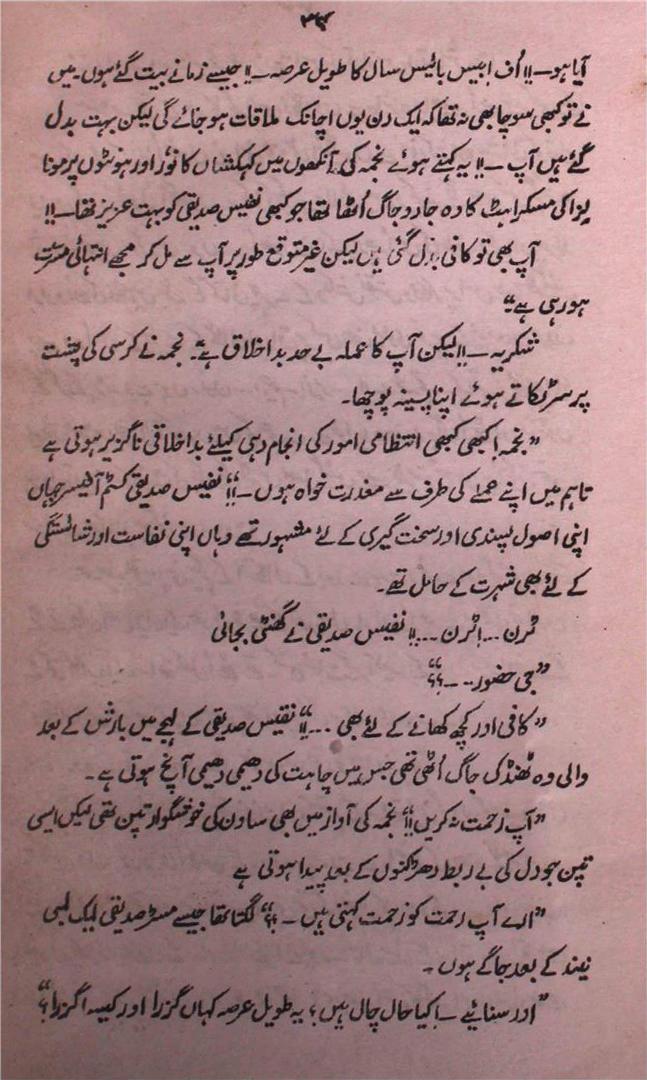 ۳۴
آیا ہو۔!! اُف! بیس بائیس سال کا طویل عرصہ۔!! جیسے زمانے بیت گئے ہوں۔ میں
نے تو کبھی سوچا بھی نہ تھا کہ ایک دن یوں اچانک ملاقات ہو جائے گی لیکن بہت بدل
گئے ہیں آپ۔!! یہ کہتے ہوئے نجمہ کی آنکھوں میں کہکشاں کا نور اور ہونٹوں پر مونا
لیزا کی مسکراہٹ کا وہ جادو جاگ اُٹھا تھا جو کبھی نفیس صدیقی کو بہت عزیز تھا۔!!
آپ بھی تو کافی بدل گئی ہیں لیکن غیر متوقع طور پر آپ سے مل کر مجھے انتہائی مسرت
ہو رہی ہے"
شکریہ۔!! لیکن آپ کا عملہ بے حد بداخلاق ہے"۔ نجمہ نے کرسی کی پشت
پر سر ٹکاتے ہوئے اپنا پسینہ پوچھا۔
"نجمہ! کبھی کبھی انتظامی امور کی انجام دہی کیلئے بداخلاقی ناگزیر ہوتی ہے
تاہم میں اپنے عملے کی طرف سے معذرت خواہ ہوں۔!!" نفیس صدیقی کسٹم آفیسر جہاں
اپنی اصول پسندی اور سخت گیری کے لئے مشہور تھے وہاں اپنی نفاست اور شائستگی
کے لئے بھی شہرت کے حامل تھے۔
ٹرن ...! ٹرن ...!! نفیس صدیقی نے گھنٹی بجائی
"جی حضور۔۔۔؟؟"
"کافی اور کچھ کھانے کے لئے بھی ...!!" نفیس صدیقی کے لہجے میں بارش کے بعد
والی وہ ٹھنڈک جاگ اُٹھی تھی جس میں چاہت کی دھیمی دھیمی آنچ ہوتی ہے۔
"آپ زحمت نہ کریں!!" نجمہ کی آواز میں بھی ساون کی خوشگوار تپن تھی لیکن ایسی
تپن جو دل کی بے ربط دھڑکنوں کے بعد پیدا ہوتی ہے
"ارے آپ رحمت کو زحمت کہتی ہیں۔؟؟" لگتا تھا جیسے مسٹر صدیقی ایک لمبی
نیند کے بعد جاگے ہوں۔
"اور سنائیے۔! کیا حال چال ہیں؟ یہ طویل عرصہ کہاں گزرا اور کیسے گزرا؟"